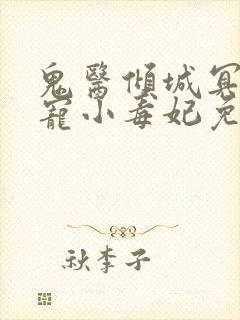 鬼醫傾城冥
寵小毒妃免
秋李子